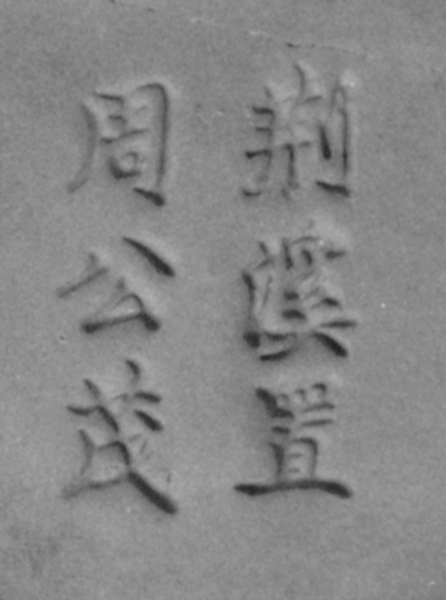 荆溪置
周公茂